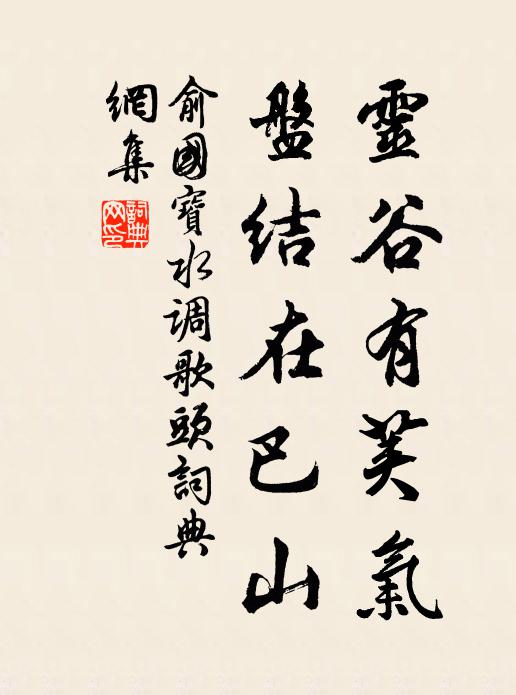 靈谷有英氣
盤结在巴山
俞國寶水调歌頭詞典
網集
詞典
网印